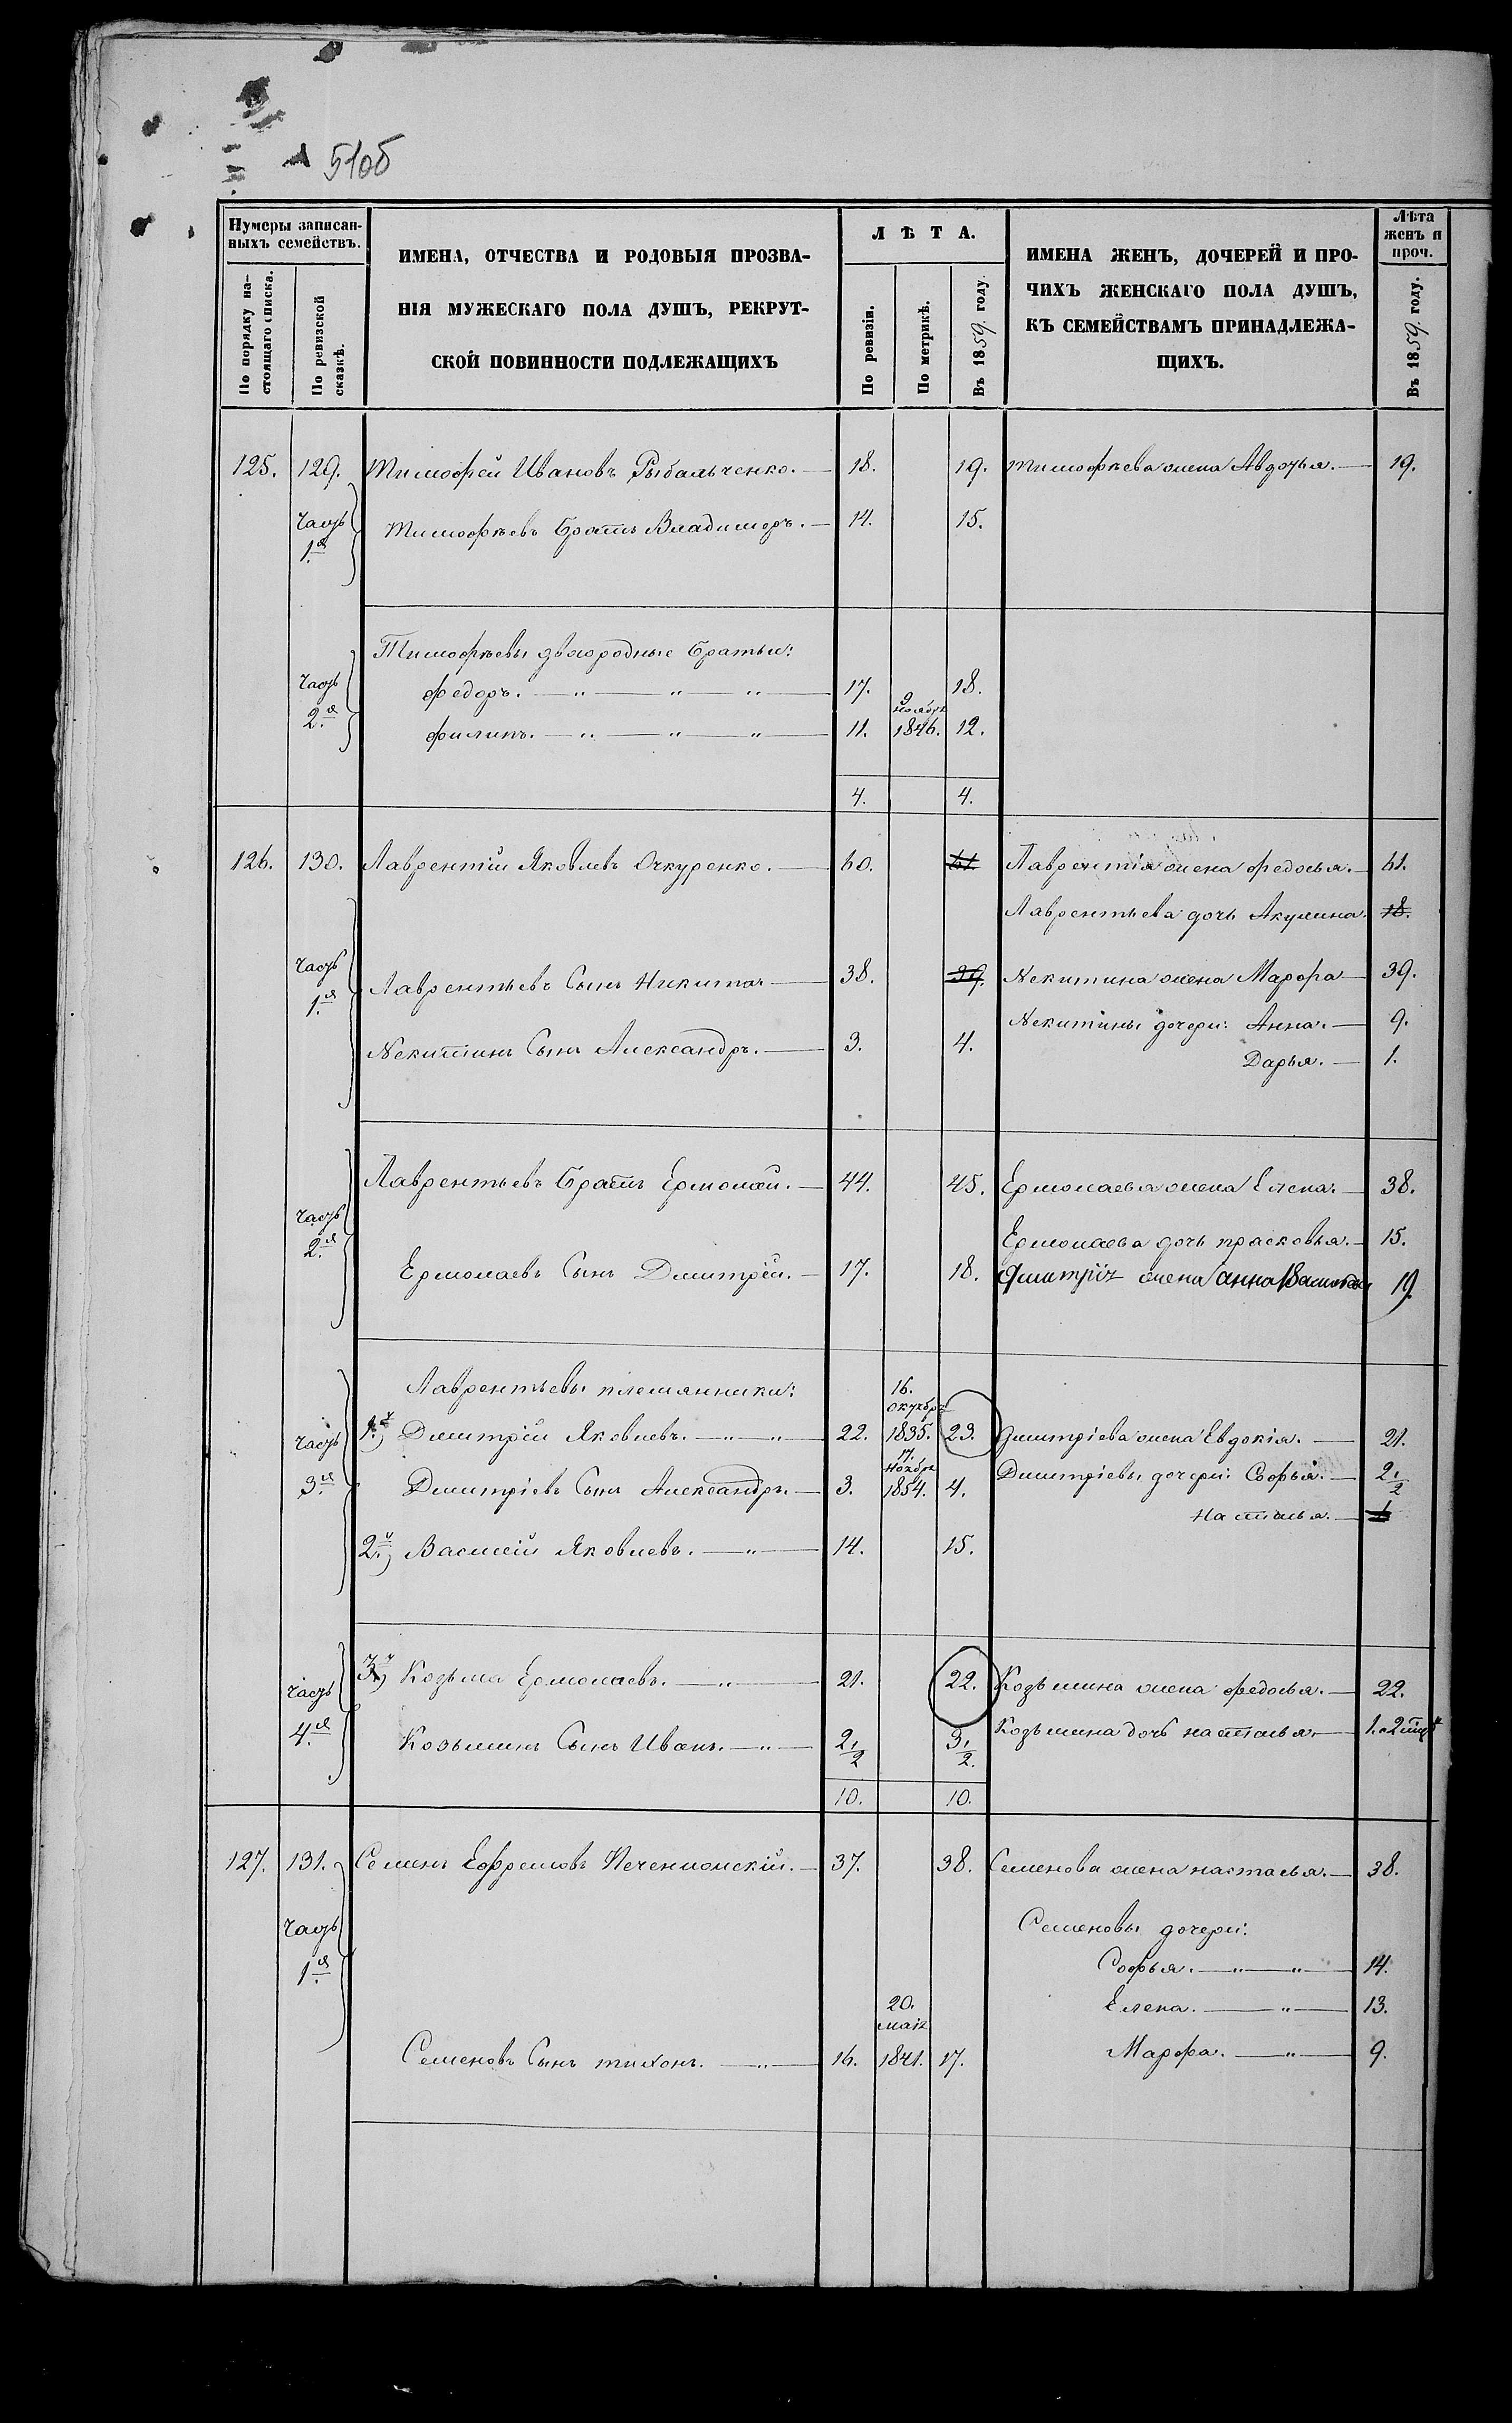 510б
Нумеры записан-
ныхъ семействъ.
По порядку на-
стоящаго списка.
По ревизской
сказкѣ.
ИМЕНА, ОТЧЕСТВА И РОДОВЫЯ ПРОЗВА-
НІЯ МУЖЕСКАГО ПОЛА ДУШЪ, РЕКРУТ-
СКОЙ ПОВИННОСТИ ПОДЛЕЖАЩИХЪ
ЛѢТА.
По ревизіи.
По метрикѣ.
Въ 1859 году.
ИМЕНА ЖЕНЪ, ДОЧЕРЕЙ И ПРО-
ЧИХЪ ЖЕНСКАГО ПОЛА ДУШЪ,
КЪ СЕМЕЙСТВАМЪ ПРИНАДЛЕЖА-
ЩИХЪ.
Лѣта
женъ и
проч.
Въ 1859 году.
125. 129. Тимофей Ивановъ Рыбальченко. 18. 19. Тимофѣева жена Авдотья. 19.
Часть
1.я
Тимофѣевъ Братъ Владимеръ. 14. 15.
Тимофѣевы двоюродные Братьи:
Часть
2.я
Федоръ. 17. 18.
9
ноября
Филипъ. 11. 1846. 12.
4. 4.
126. 130. Лаврентій Яковлевъ Очкуренко. 60. 61. Лаврентія жена Федосья. 61.
Лаврентьева дочь Акулина. 18.
Часть
1.я
Лаврентьевъ Сынъ Никита 38. 39. Некитина жена Марфа 39.
Некитины дочери: Анна. 9.
Некитинъ Сынъ Александръ. 3. 4.
Дарья. 1.
Лаврентьевъ Братъ Ермолай. 44. 45. Ермолаева жена Елена. 38.
Часть
2.я
Ермолаева дочь Прасковья. 15.
Ермолаевъ Сынъ Дмитрій. 17. 18. Дмитрія жена Анна 19.
Лаврентьевы племянники:
16.
октября
Часть
3.я
1.й) Дмитрій Яковлевъ. 22. 1835. 23. Дмитріева жена Евдокія. 21.
17.
Ноября
Дмитріевъ Сынъ Александръ. 3. 1854. 4. Дмитріевы дочери: Софья. 2 1/2
Наталья. 1
2.й) Василій Яковлевъ. 14. 15.
Часть
4.я
3.й) Козьма Ермолаевъ. 21. 22. Козьмина жена Федосья. 22.
Козьминъ Сынъ Иванъ. 2 1/2 3 1/2. Козьмина дочь Наталья. 1.
10. 10.
127. 131. Семенъ Ефремовъ 37. 38. Семенова жена Настасья. 38.
Часть
1.я
Семеновы дочери:
Софья. 14.
Елена. 13.
20.
мая
Семеновъ Сынъ Тихонъ. 16. 1841. 17. Марфа. 9.